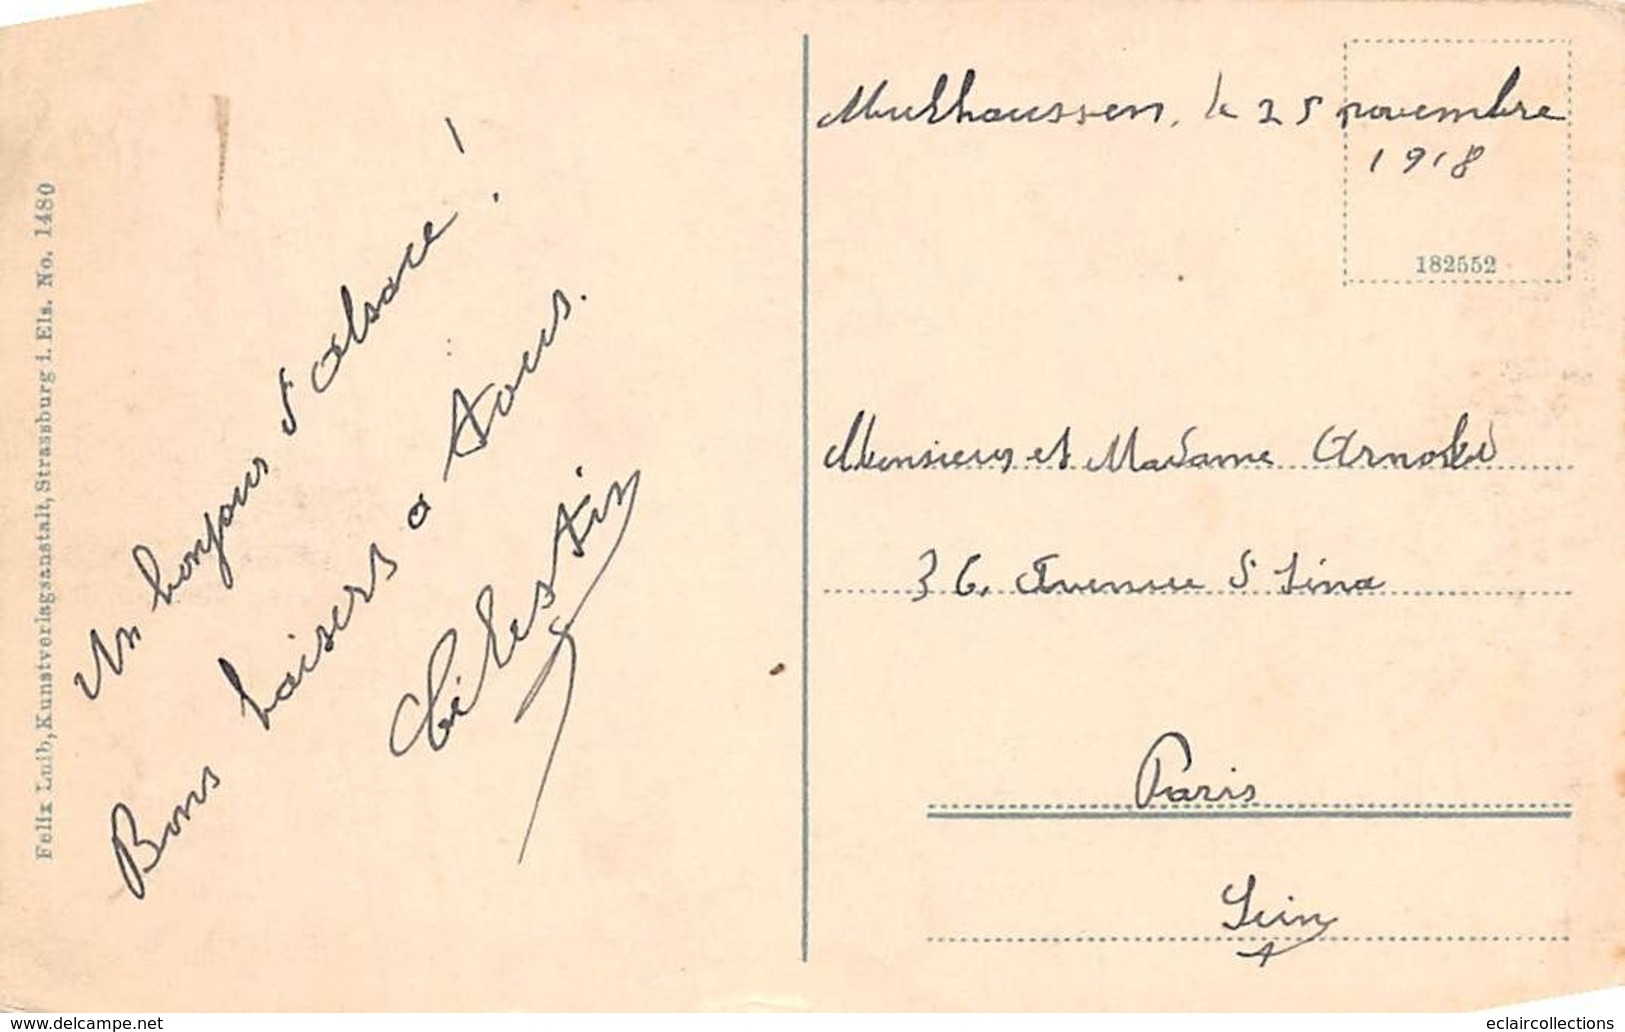 Felix Luib, Kunstverlagsanstalt, Strassburg i. Els. No. 1480
Un bonjour d'alsace !
Bons baisers a tous.
Célestin
Mulhaussen, le 25 novembre
1918
182552
Monsieur et Madame Arnould
36, Avenue d'Iéna
Paris
Sein
www.delcampe.net
eclaircollections